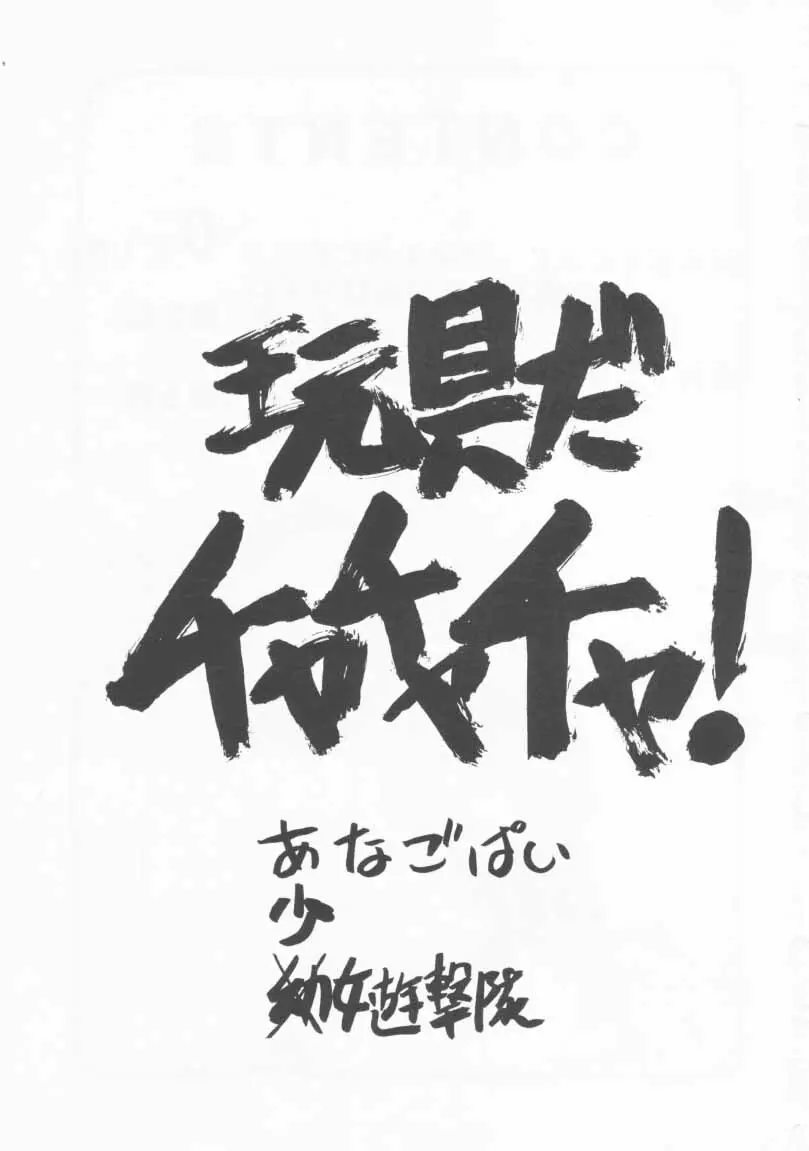 玩具だ
チャチャチャ!
あなごぱい
少
幼女遊撃隊
CONTENTS